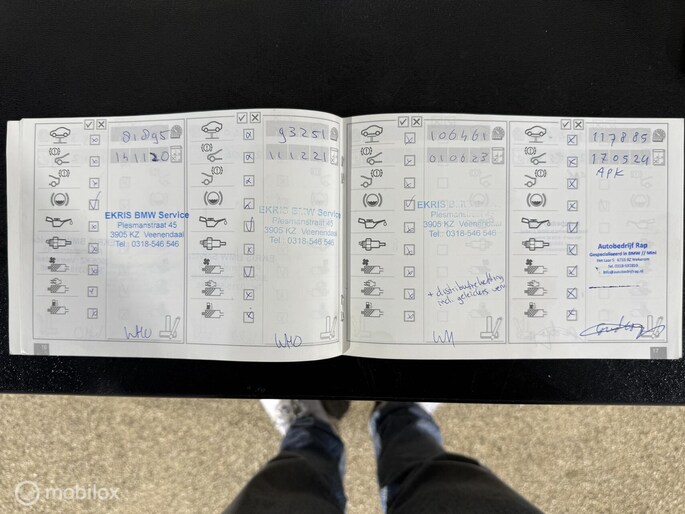 93251
141120
101221
EKRIS BMW Service
Plesmanstraat 45
3905 KZ Veenendaal
Tel.: 0318-546 546
EKRIS BMW Service
Plesmanstraat 45
3905 KZ Veenendaal
Tel.: 0318-546 546
WHO
WHO
106461
117885
010623
170524
APK
EKRIS
3905 KZ Veenendaal
Tel.: 0318-546 546
Autobedrijf Rap
Gespecialiseerd in BMW // Mini
+ distributieketting
incl. geleiders
mobilox